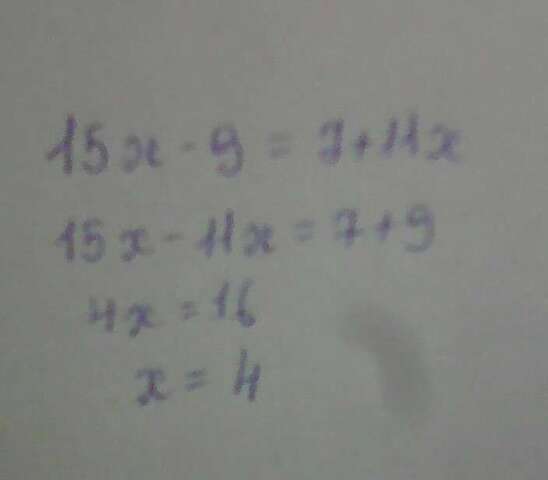 15x - 9 = 7 + 11x
15x - 11x = 7 + 9
4x = 16
x = 4